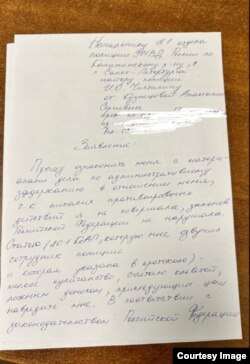 Начальнику 21 отдела
полиции УМВД России по
Калининскому р-ну
г. Санкт-Петербурга
майору полиции
И.О.
от Кузнецовой Анастасии
Сергеевны
Заявление:
Прошу ознакомить меня с матери-
алами дела по административному
задержанию в отношении меня,
т.к. никаких противоправных
действий я не совершала, законов
Российской Федерации не нарушала.
Статью (20.1 КоАП, которую мне озвучил
сотрудник полиции
и которая указана в протоколе) -
мелкое хулиганство, считаю клеветой,
ложным доносом, преследующим цель
навредить мне. В соответствии с
законодательством Российской Федерации
Courtesy Image